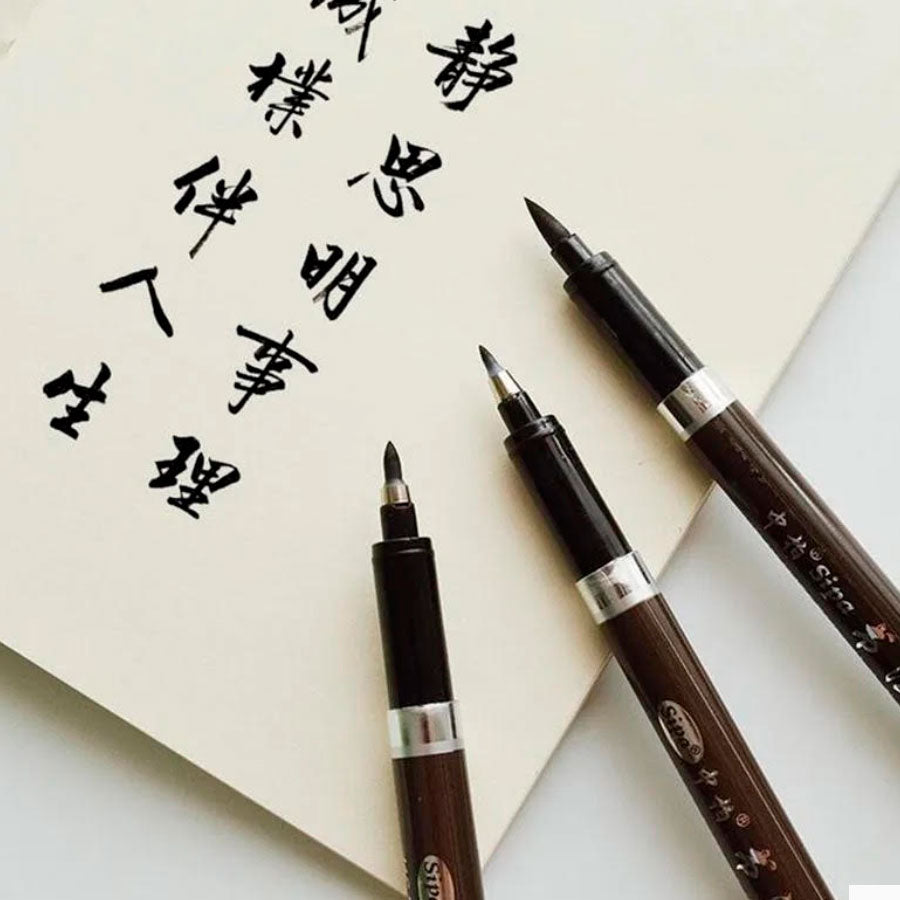 静思明事理
樸伴人生
中柏®Sipa
Sipa®中柏®
Sipa